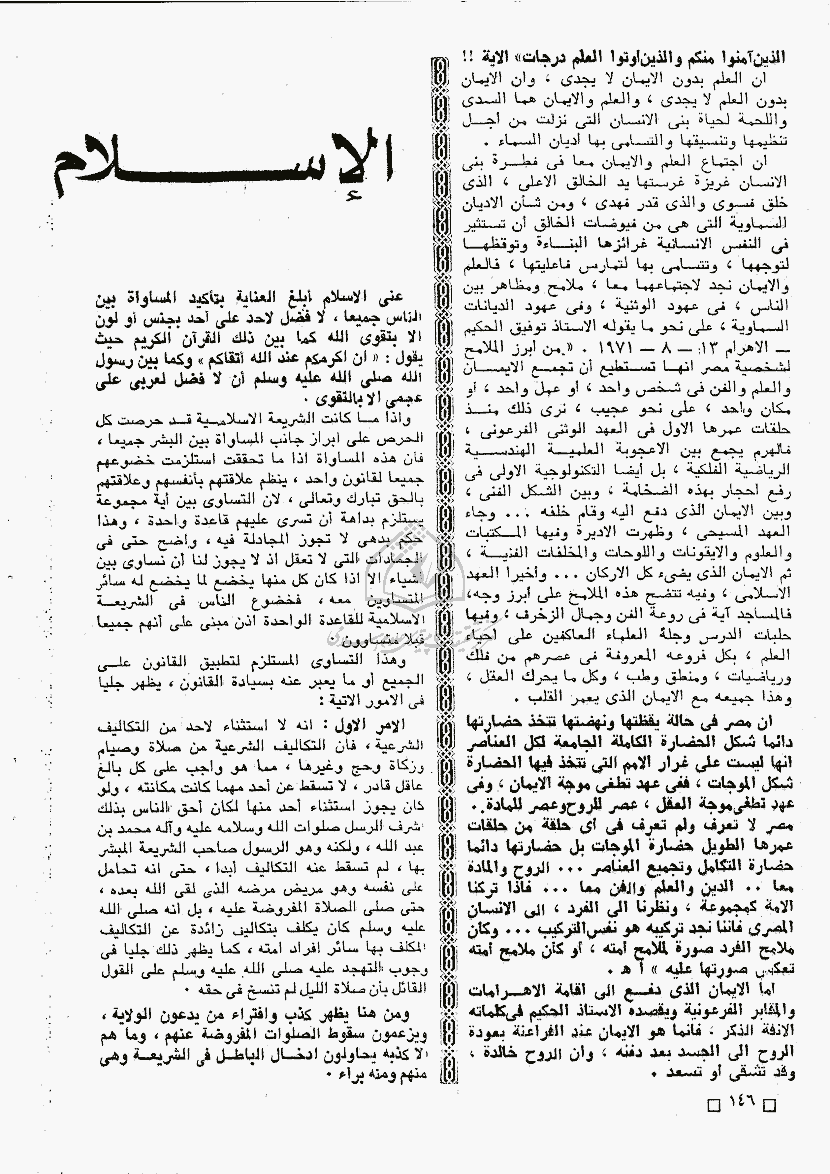 الذين آمنوا منكم والذين أوتوا العلم درجات» الاية !!
ان العلم بدون الايمان لا يجدى ، وان الايمان
بدون العلم لا يجدى ، والعلم والايمان هما السدى
واللحمة لحياة بنى الانسان التى نزلت من أجل
تنظيمها وتنسيقها والتسامى بها أديان السماء .
ان اجتماع العلم والايمان معا فى فطرة بنى
الانسان غريزة غرستها يد الخالق الاعلى ، الذى
خلق فسوى والذى قدر فهدى ، ومن شأن الاديان
السماوية التى هى من فيوضات الخالق أن تستثير
فى النفس الانسانية غرائزها البناءة وتوقظها
لتوجهها ، وتتسامى بها لتمارس فاعليتها ، فالعلم
والايمان نجد لاجتماعهما معا ، ملامح ومظاهر بين
الناس ، فى عهود الوثنية ، وفى عهود الديانات
السماوية ، على نحو ما يقوله الاستاذ توفيق الحكيم
ـ الاهرام ١٣ ـ ٨ ـ ١٩٧١ . «من أبرز الملامح
لشخصية مصر انها تستطيع أن تجمع الايمان
والعلم والفن فى شخص واحد ، أو عمل واحد ، أو
مكان واحد ، على نحو عجيب ، نرى ذلك منذ
حلقات عمرها الاول فى العهد الوثنى الفرعونى ،
فالهرم يجمع بين الاعجوبة العلمية الهندسية
الرياضية الفلكية ، بل أيضا التكنولوجية الاولى فى
رفع أحجار بهذه الضخامة ، وبين الشكل الفنى ،
وبين الايمان الذى دفع اليه وقام خلفه ... وجاء
العهد المسيحى ، وظهرت الاديرة وفيها المكتبات
والعلوم والايقونات واللوحات والمخلفات الفنية ،
ثم الايمان الذى يضىء كل الاركان ... وأخيرا العهد
الاسلامى ، وفيه تتضح هذه الملامح على أبرز وجه،
فالمساجد آية فى روعة الفن وجمال الزخرف ، وفيها
حلبات الدرس وجلة العلماء العاكفين على احياء
العلم ، بكل فروعه المعروفة فى عصرهم من فلك
ورياضيات ، ومنطق وطب ، وكل ما يحرك العقل ،
وهذا جميعه مع الايمان الذى يعمر القلب .
ان مصر فى حالة يقظتها ونهضتها تتخذ حضارتها
دائما شكل الحضارة الكاملة الجامعة لكل العناصر
انها ليست على غرار الامم التى تتخذ فيها الحضارة
شكل الموجات ، ففى عهد تطفى موجة الايمان ، وفى
عهد تطفى موجة العقل ، عصر للروح وعصر للمادة .
مصر لا تعرف ولم تعرف فى أى حلقة من حلقات
عمرها الطويل حضارة الموجات بل حضارتها دائما
حضارة التكامل وتجميع العناصر ... الروح والمادة
معا .. الدين والعلم والفن معا ... فاذا تركنا
الامة كمجموعة ، ونظرنا الى الفرد ، الى الانسان
المصرى فاننا نجد تركيبه هو نفس التركيب ... وكأن
ملامح الفرد صورة لملامح أمته ، أو كأن ملامح أمته
تعكس صورتها عليه » أ هـ .
اما الايمان الذى دفع الى اقامة الاهرامات
والمقابر الفرعونية ويقصده الاستاذ الحكيم فى كلماته
الانفة الذكر ، فانما هو الايمان عند الفراعنة بعودة
الروح الى الجسد بعد دفنه ، وان الروح خالدة ،
وقد تشقى أو تسعد .
الإسلام
عنى الاسلام أبلغ العناية بتأكيد المساواة بين
الناس جميعا ، لا فضل لاحد على أحد بجنس أو لون
الا بتقوى الله كما بين ذلك القرآن الكريم حيث
يقول : « ان اكرمكم عند الله أتقاكم » وكما بين رسول
الله صلى الله عليه وسلم أن لا فضل لعربى على
عجمى الا بالتقوى .
واذا ما كانت الشريعة الاسلامية قد حرصت كل
الحرص على ابراز جانب المساواة بين البشر جميعا ،
فان هذه المساواة اذا ما تحققت استلزمت خضوعهم
جميعا لقانون واحد ، ينظم علاقتهم بأنفسهم وعلاقتهم
بالحق تبارك وتعالى ، لان التساوى بين أية مجموعة
يستلزم بداهة أن تسرى عليهم قاعدة واحدة ، وهذا
حكم بدهى لا تجوز المجادلة فيه ، واضح حتى فى
الجمادات التى لا تعقل اذ لا يجوز لنا أن نساوى بين
أشياء الا اذا كان كل منها يخضع لما يخضع له سائر
المتساوين معه ، فخضوع الناس فى الشريعة
الاسلامية للقاعدة الواحدة اذن مبنى على أنهم جميعا
قبلا متساوون .
وهذا التساوى المستلزم لتطبيق القانون على
الجميع أو ما يعبر عنه بسيادة القانون ، يظهر جليا
فى الامور الاتية :
الامر الاول : انه لا استثناء لاحد من التكاليف
الشرعية ، فان التكاليف الشرعية من صلاة وصيام
وزكاة وحج وغيرها ، مما هو واجب على كل بالغ
عاقل قادر ، لا تسقط عن أحد مهما كانت مكانته ، ولو
كان يجوز استثناء أحد منها لكان أحق الناس بذلك
أشرف الرسل صلوات الله وسلامه عليه وآله محمد بن
عبد الله ، ولكنه وهو الرسول صاحب الشريعة المبشر
بها ، لم تسقط عنه التكاليف أبدا ، حتى انه تحامل
على نفسه وهو مريض مرضه الذى لقى الله بعده ،
حتى صلى الصلاة المفروضة عليه ، بل انه صلى الله
عليه وسلم كان يكلف بتكاليف زائدة عن التكاليف
المكلف بها سائر أفراد أمته ، كما يظهر ذلك جليا فى
وجوب التهجد عليه صلى الله عليه وسلم على القول
القائل بأن صلاة الليل لم تنسخ فى حقه .
ومن هنا يظهر كذب وافتراء من يدعون الولاية ،
ويزعمون سقوط الصلوات المفروضة عنهم ، وما هم
الا كذبه يحاولون ادخال الباطل فى الشريعة وهى
منهم ومنه براء .
١٤٦